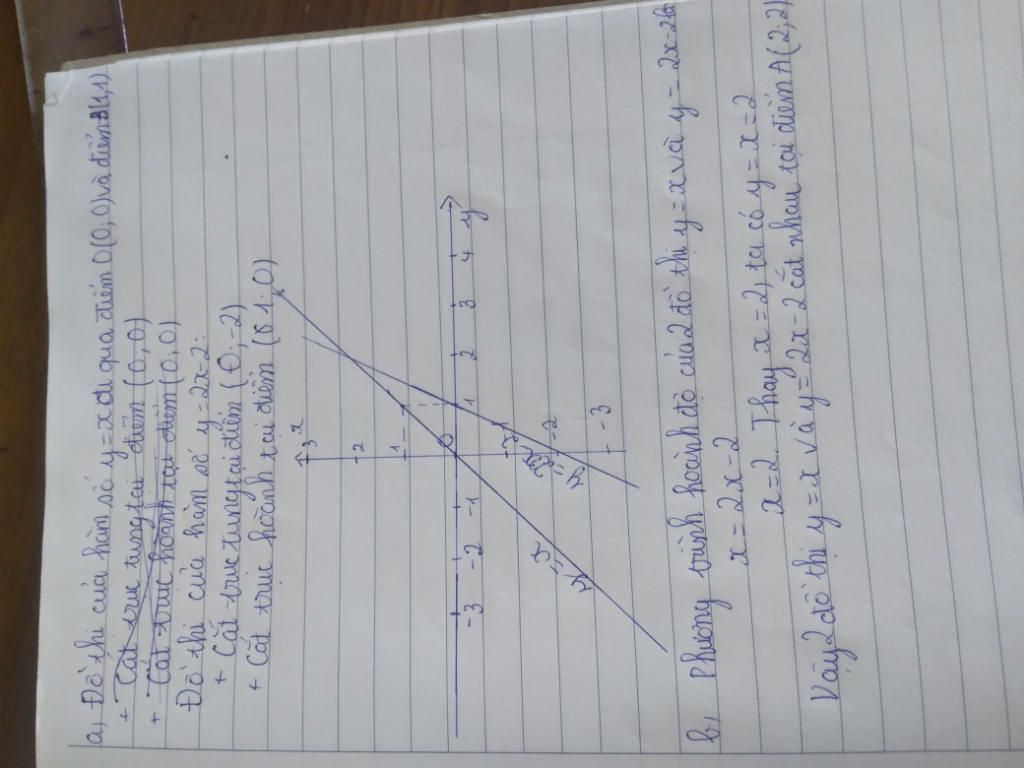 a, Đồ thị của hàm số y=x đi qua điểm O(0,0) và điểm (1,1)
+ Cắt trục tung tại điểm (0,0)
+ Cắt trục hoành tại điểm (0,0)
Đồ thị của hàm số y=2x-2:
+ Cắt trục tung tại điểm (0,-2)
+ Cắt trục hoành tại điểm (1,0)
x
3
2
1
O
-3 -2 -1 1 2 3 4 y
-2
-3
b, Phương trình hoành độ của 2 đồ thị y=x và y=2x-2
x=2x-2
x=2. Thay x=2, ta có y=x=2
Vậy 2 đồ thị y=x và y=2x-2 cắt nhau tại điểm A(2,2)